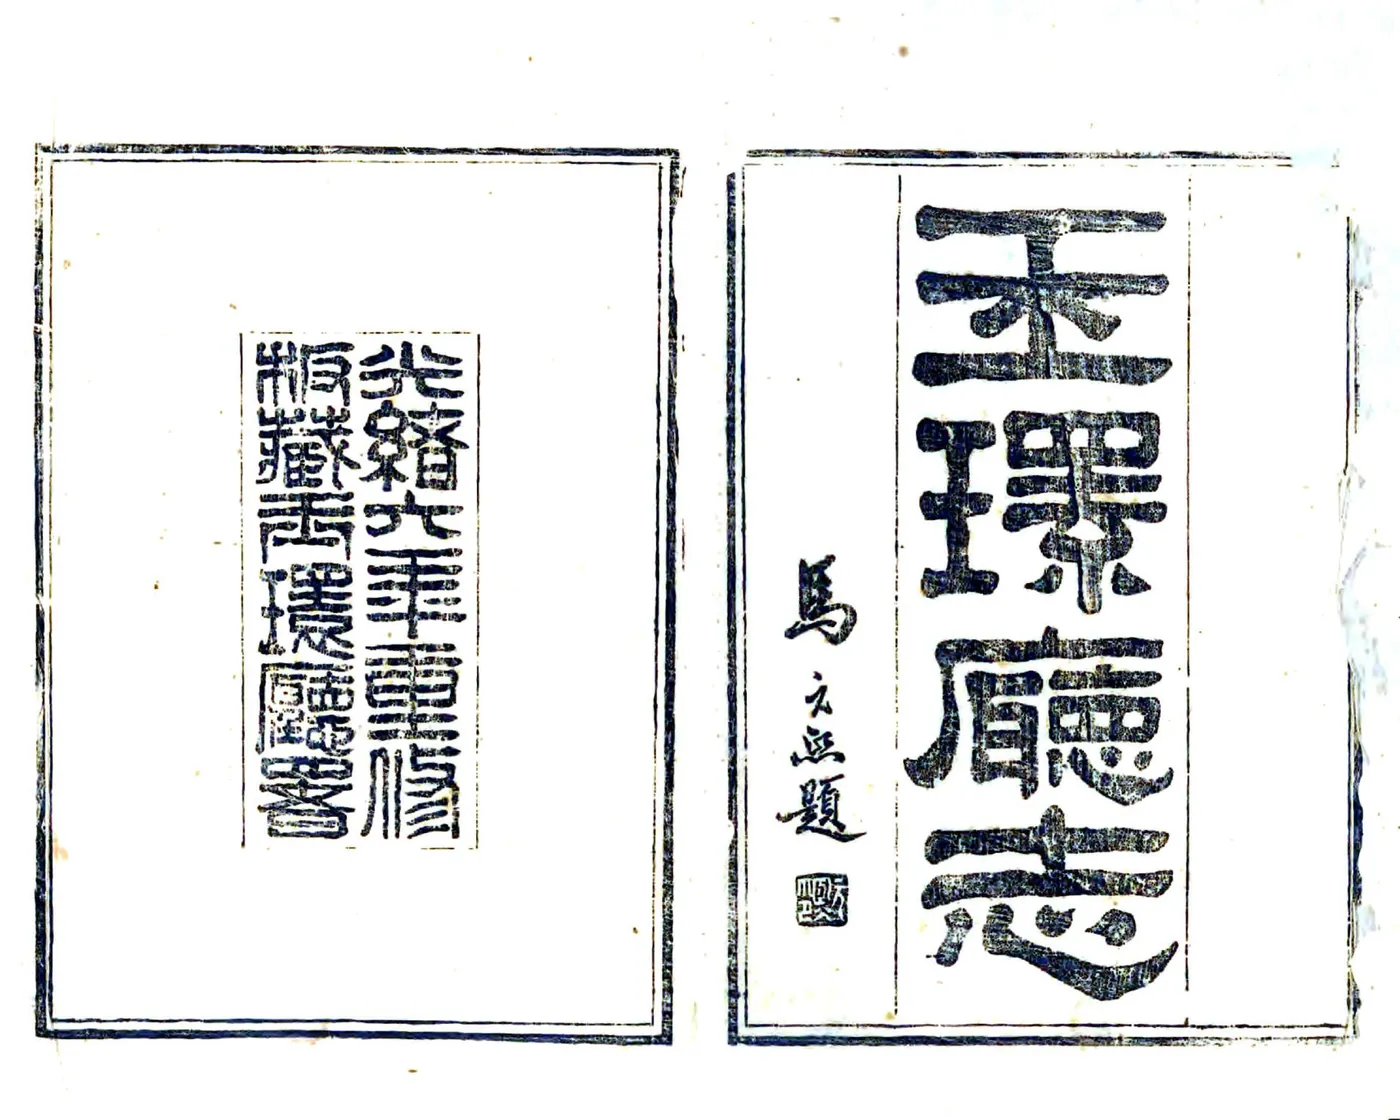 玉環廳志
馬元熙題
光緒六年重修
板藏玉環廳署